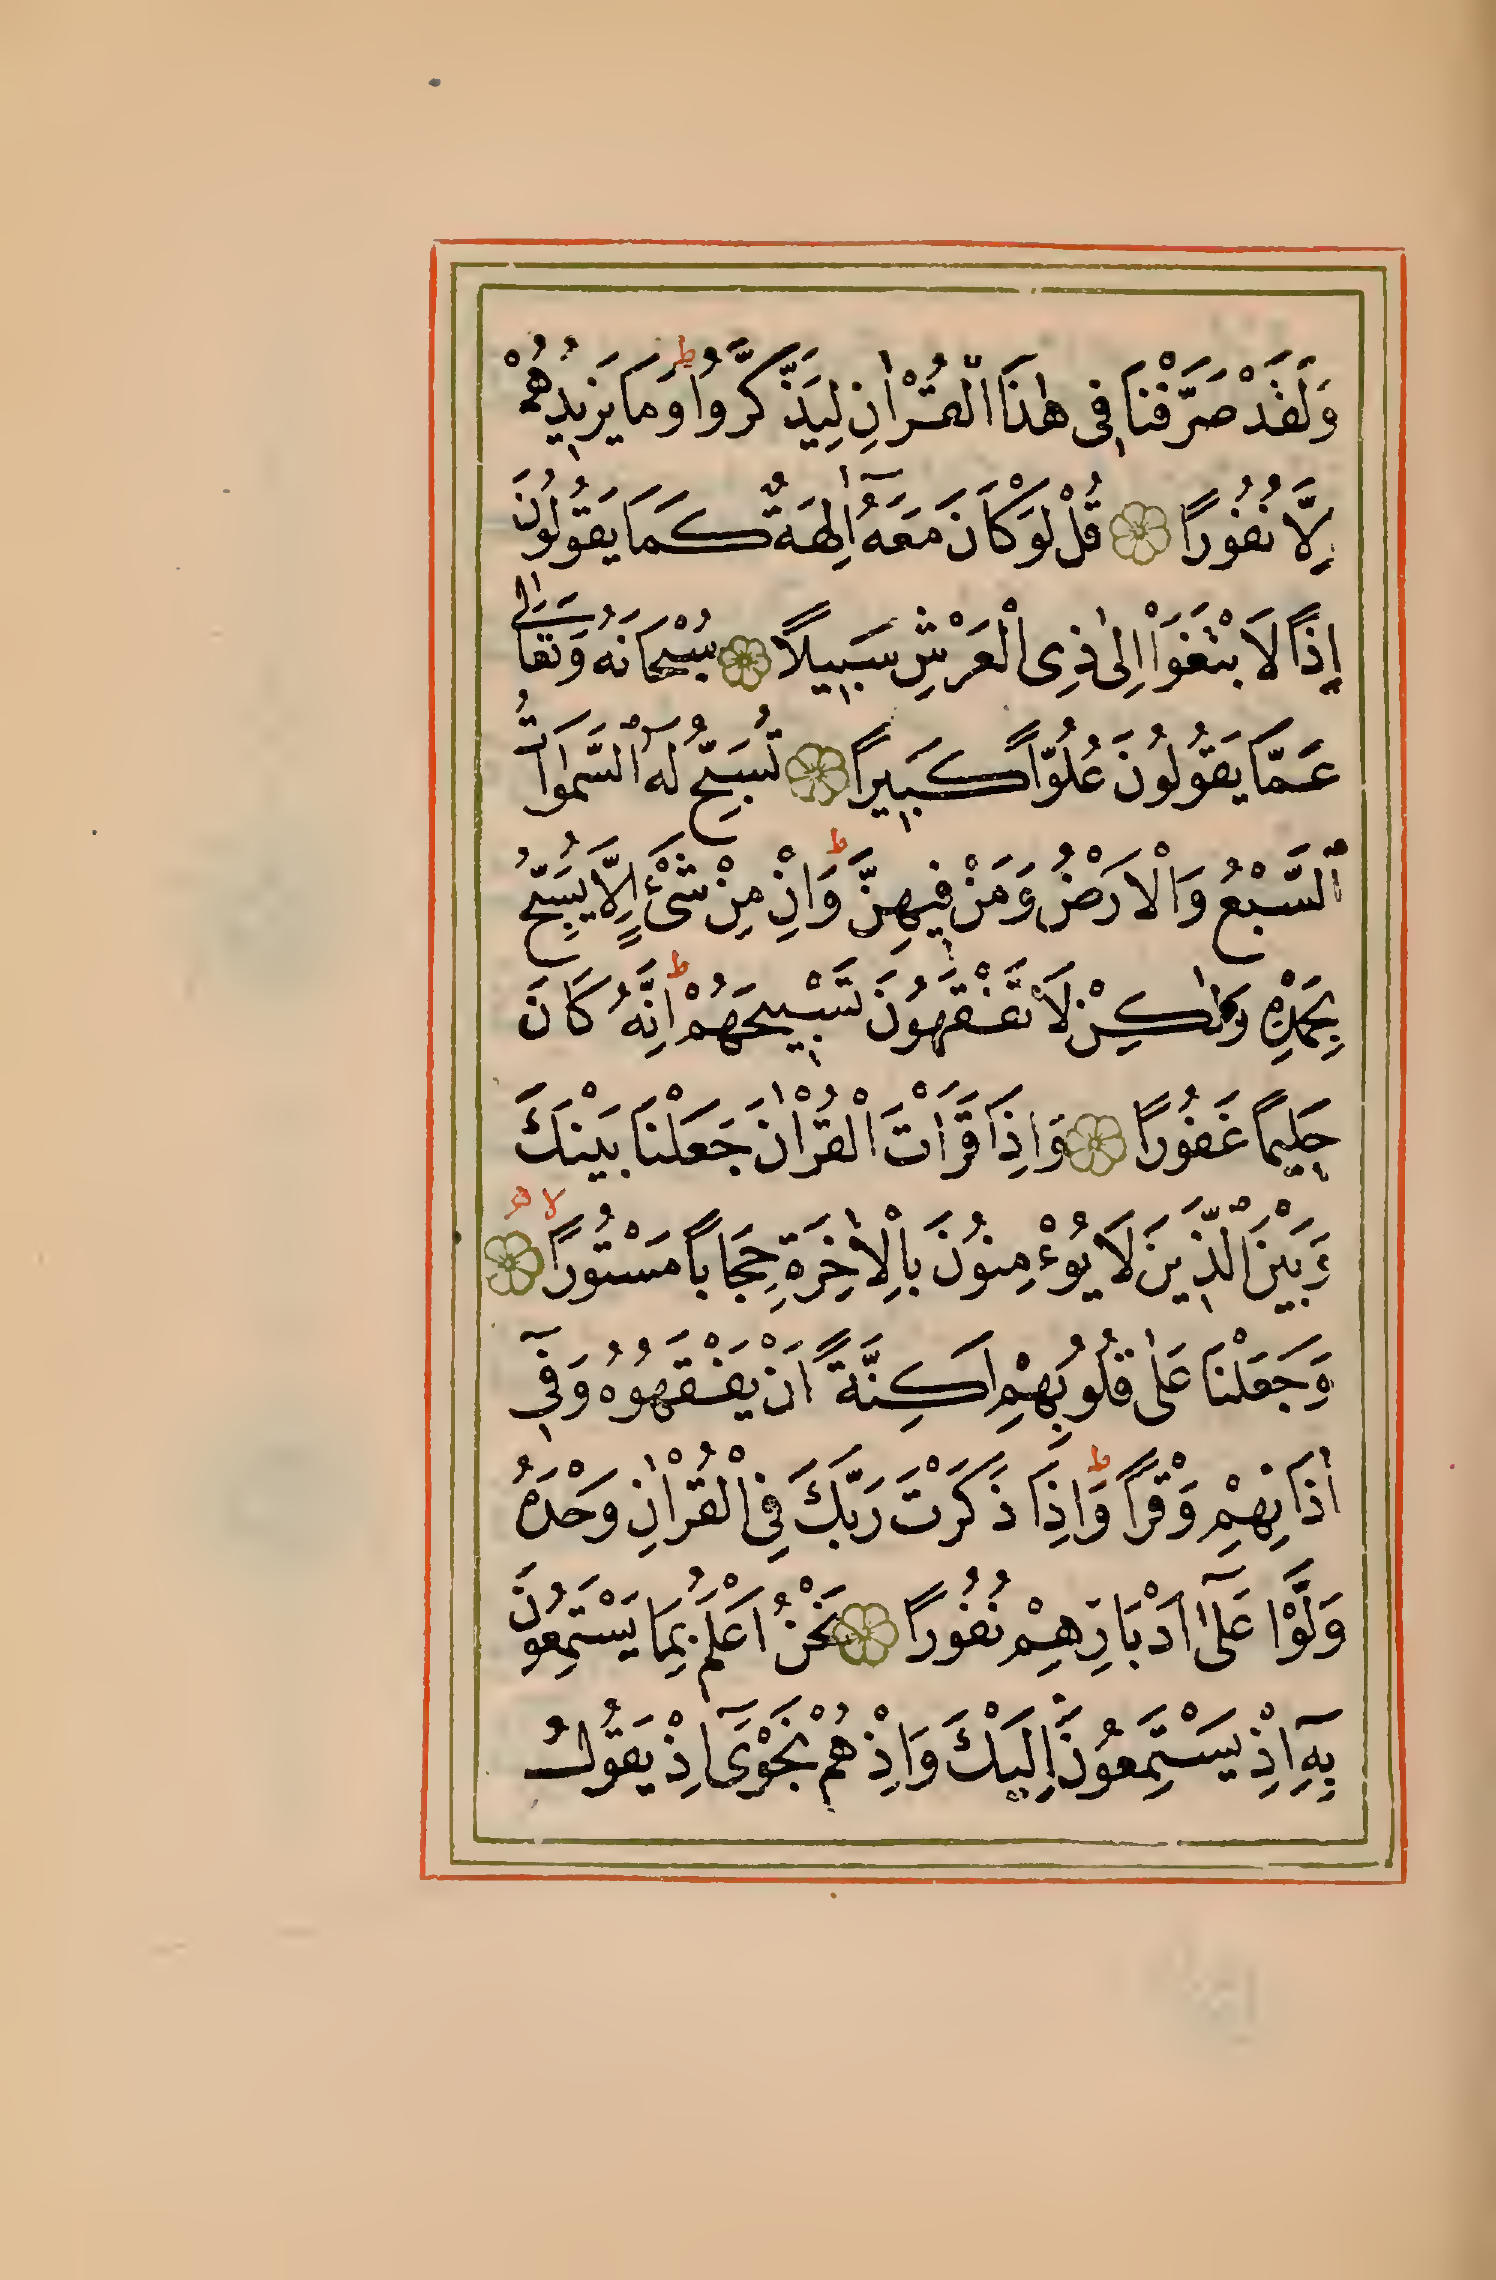 وَلَقَدْ صَرَّفْنَا فِى هٰذَا الْقُرْاٰنِ لِيَذَّكَّرُوا ط وَمَا يَزِيدُهُمْ
اِلَّا نُفُورًا قُلْ لَوْ كَانَ مَعَهُٓ اٰلِهَةٌ كَمَا يَقُولُونَ
اِذًا لَابْتَغَوْا اِلٰى ذِى الْعَرْشِ سَبِيلًا سُبْحَانَهُ وَتَعَالٰى
عَمَّا يَقُولُونَ عُلُوًّا كَبِيرًا تُسَبِّحُ لَهُ السَّمٰوَاتُ
السَّبْعُ وَالْاَرْضُ وَمَنْ فِيهِنَّ ط وَاِنْ مِنْ شَىْءٍ اِلَّا يُسَبِّحُ
بِحَمْدِهِ وَلٰكِنْ لَا تَفْقَهُونَ تَسْبِيحَهُمْ ط اِنَّهُ كَانَ
حَلِيمًا غَفُورًا وَاِذَا قَرَاْتَ الْقُرْاٰنَ جَعَلْنَا بَيْنَكَ
وَبَيْنَ الَّذِينَ لَا يُوْءْمِنُونَ بِالْاٰخِرَةِ حِجَابًا مَسْتُورًا لا
وَجَعَلْنَا عَلٰى قُلُوبِهِمْ اَكِنَّةً اَنْ يَفْقَهُوهُ وَفِىٓ
اٰذَانِهِمْ وَقْرًا ط وَاِذَا ذَكَرْتَ رَبَّكَ فِى الْقُرْاٰنِ وَحْدَهُ
وَلَّوْا عَلٰٓى اَدْبَارِهِمْ نُفُورًا نَحْنُ اَعْلَمُ بِمَا يَسْتَمِعُونَ
بِهِٓ اِذْ يَسْتَمِعُونَ اِلَيْكَ وَاِذْ هُمْ نَجْوٰٓى اِذْ يَقُولُ